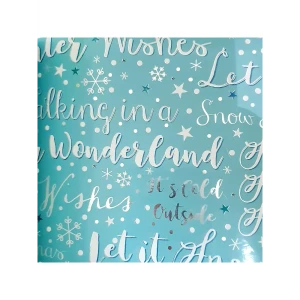 ter Wishes
Let
alking in a
Snow
Wonderland
Wishes
It's Cold
Outside
Let it